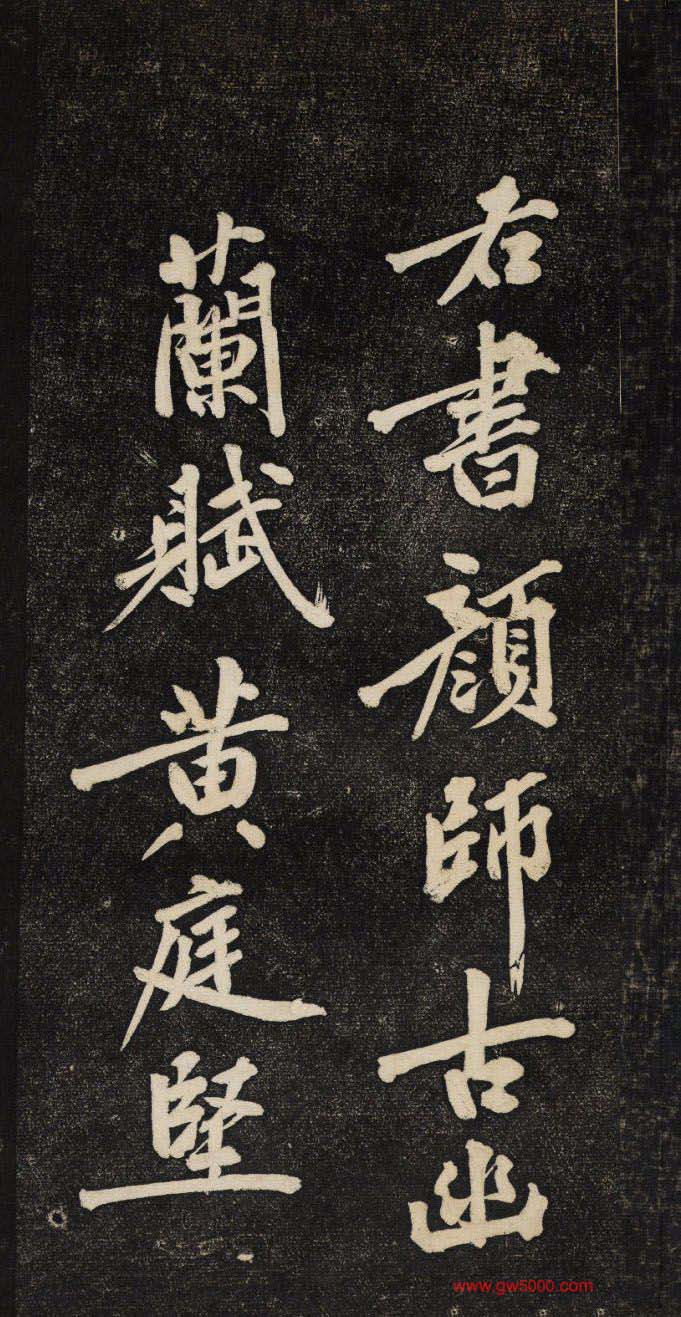 右書顔師古幽
蘭賦黄庭堅
www.gw5000.com